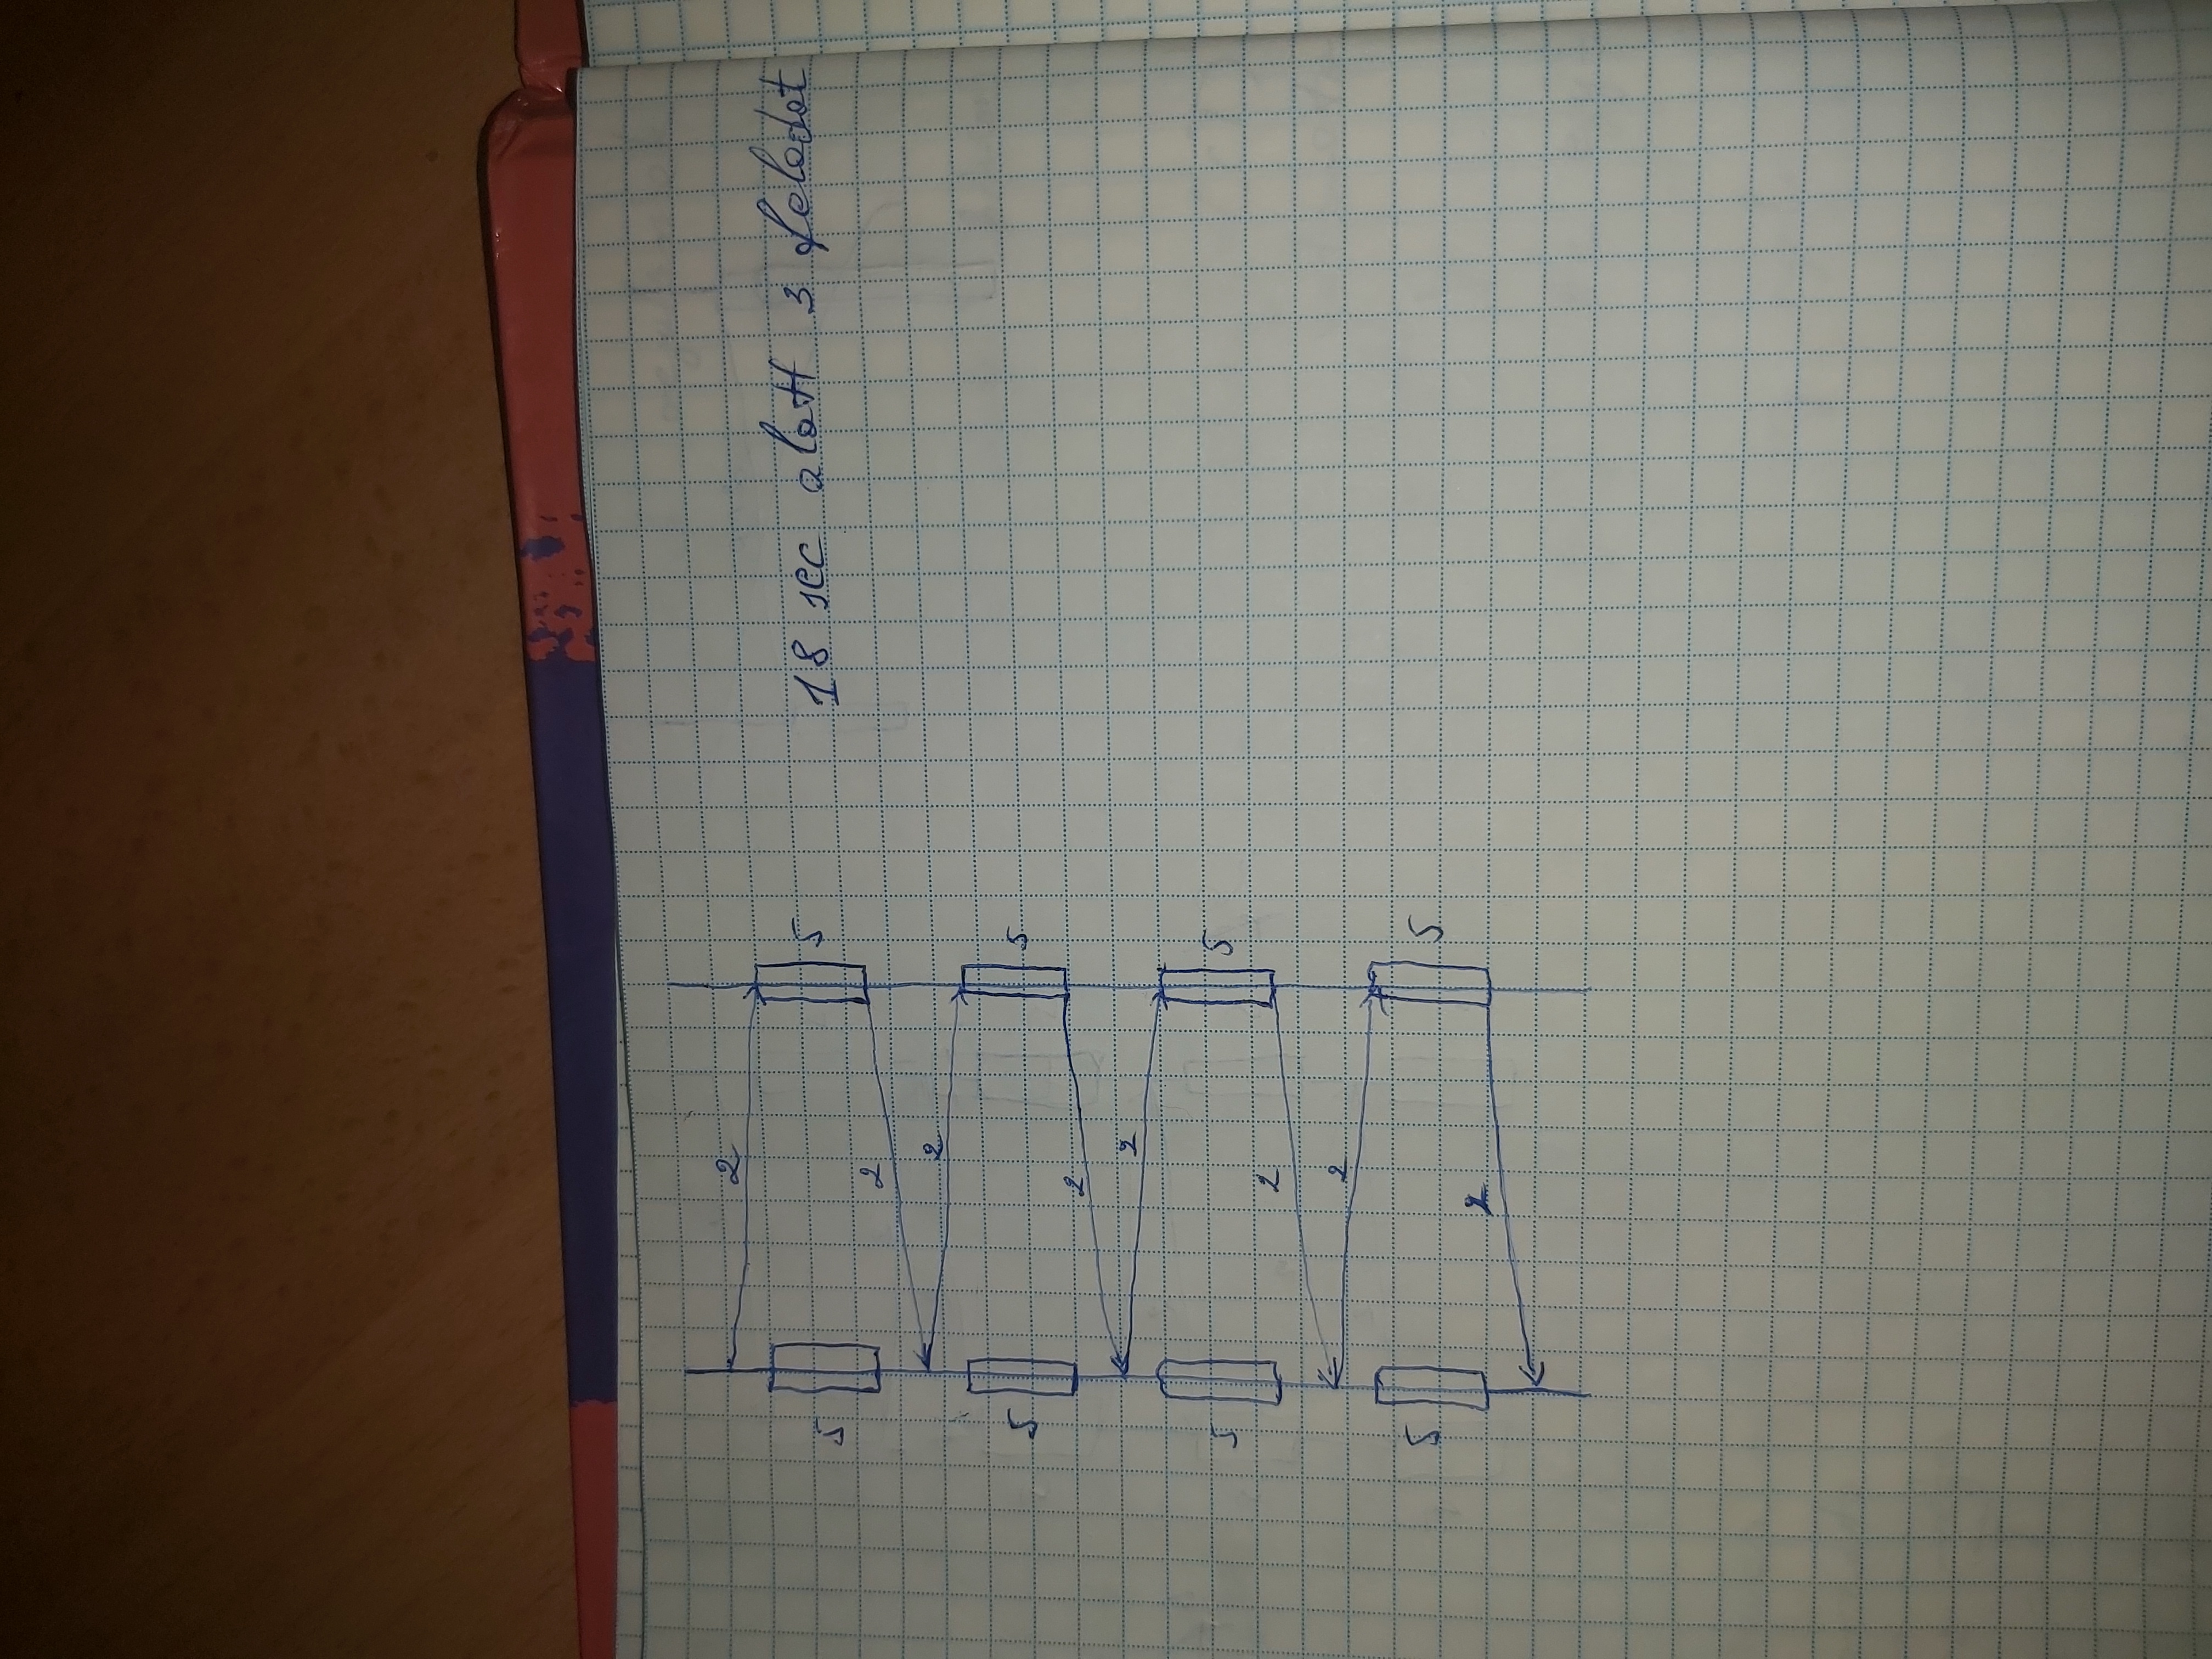 2
5 5
2
2
5 5
2
2
5 5
2
2
5 5
2
18 sec alatt 3 feladat